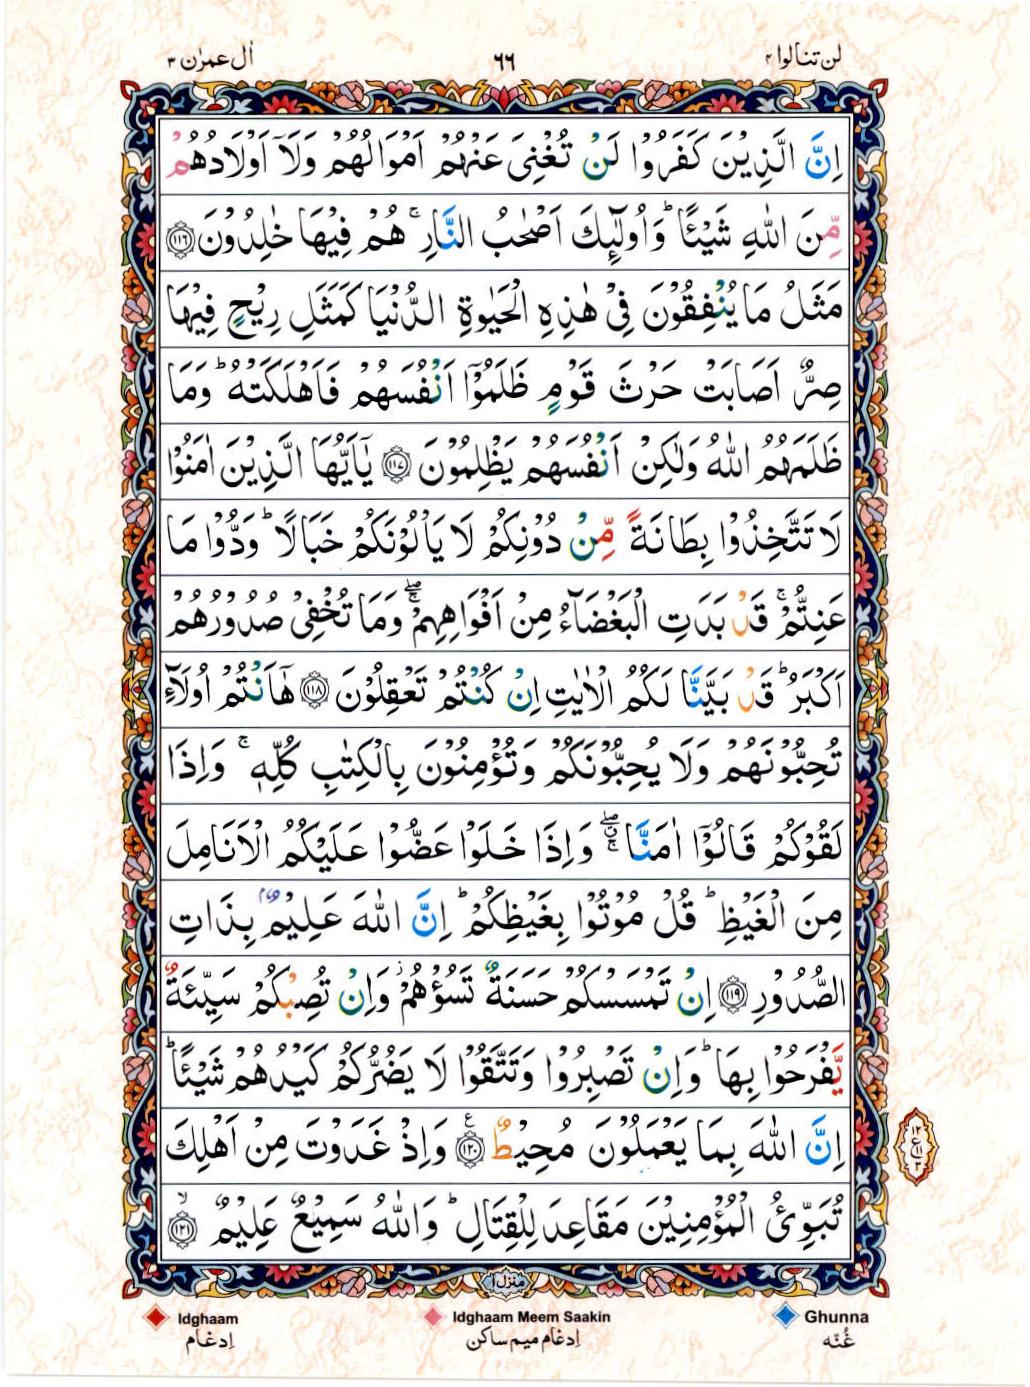 لن تنالوا ۴
٦٦
اٰل عمرٰن ۳
اِنَّ الَّذِيْنَ كَفَرُوْا لَنْ تُغْنِىَ عَنْهُمْ اَمْوَالُهُمْ وَلَاۤ اَوْلَادُهُمْ
مِّنَ اللّٰهِ شَيْـًٔا ؕ وَاُولٰٓئِكَ اَصْحٰبُ النَّارِ ۚ هُمْ فِيْهَا خٰلِدُوْنَ ﴿١١٦﴾
مَثَلُ مَا يُنْفِقُوْنَ فِىْ هٰذِهِ الْحَيٰوةِ الدُّنْيَا كَمَثَلِ رِيْحٍ فِيْهَا
صِرٌّ اَصَابَتْ حَرْثَ قَوْمٍ ظَلَمُوْۤا اَنْفُسَهُمْ فَاَهْلَكَتْهُ ؕ وَمَا
ظَلَمَهُمُ اللّٰهُ وَلٰكِنْ اَنْفُسَهُمْ يَظْلِمُوْنَ ﴿١١٧﴾ يٰۤاَيُّهَا الَّذِيْنَ اٰمَنُوْا
لَا تَتَّخِذُوْا بِطَانَةً مِّنْ دُوْنِكُمْ لَا يَاْلُوْنَكُمْ خَبَالًا ؕ وَدُّوْا مَا
عَنِتُّمْ ۚ قَدْ بَدَتِ الْبَغْضَآءُ مِنْ اَفْوَاهِهِمْ ۖۚ وَمَا تُخْفِىْ صُدُوْرُهُمْ
اَكْبَرُ ؕ قَدْ بَيَّنَّا لَكُمُ الْاٰيٰتِ اِنْ كُنْتُمْ تَعْقِلُوْنَ ﴿١١٨﴾ هٰۤاَنْتُمْ اُولَآءِ
تُحِبُّوْنَهُمْ وَلَا يُحِبُّوْنَكُمْ وَتُؤْمِنُوْنَ بِالْكِتٰبِ كُلِّهٖ ۚ وَاِذَا
لَقُوْكُمْ قَالُوْۤا اٰمَنَّا ۖۚ وَاِذَا خَلَوْا عَضُّوْا عَلَيْكُمُ الْاَنَامِلَ
مِنَ الْغَيْظِ ؕ قُلْ مُوْتُوْا بِغَيْظِكُمْ ؕ اِنَّ اللّٰهَ عَلِيْمٌۢ بِذَاتِ
الصُّدُوْرِ ﴿١١٩﴾ اِنْ تَمْسَسْكُمْ حَسَنَةٌ تَسُؤْهُمْ ؗ وَاِنْ تُصِبْكُمْ سَيِّئَةٌ
يَّفْرَحُوْا بِهَا ؕ وَاِنْ تَصْبِرُوْا وَتَتَّقُوْا لَا يَضُرُّكُمْ كَيْدُهُمْ شَيْـًٔا ؕ
اِنَّ اللّٰهَ بِمَا يَعْمَلُوْنَ مُحِيْطٌ ﴿١٢٠﴾ ع وَاِذْ غَدَوْتَ مِنْ اَهْلِكَ
تُبَوِّئُ الْمُؤْمِنِيْنَ مَقَاعِدَ لِلْقِتَالِ ؕ وَاللّٰهُ سَمِيْعٌ عَلِيْمٌ ۙ ﴿١٢١﴾
منزل ۱
Idghaam Idghaam Meem Saakin Ghunna
اِدغام اِدغام میم ساکن غُنّه